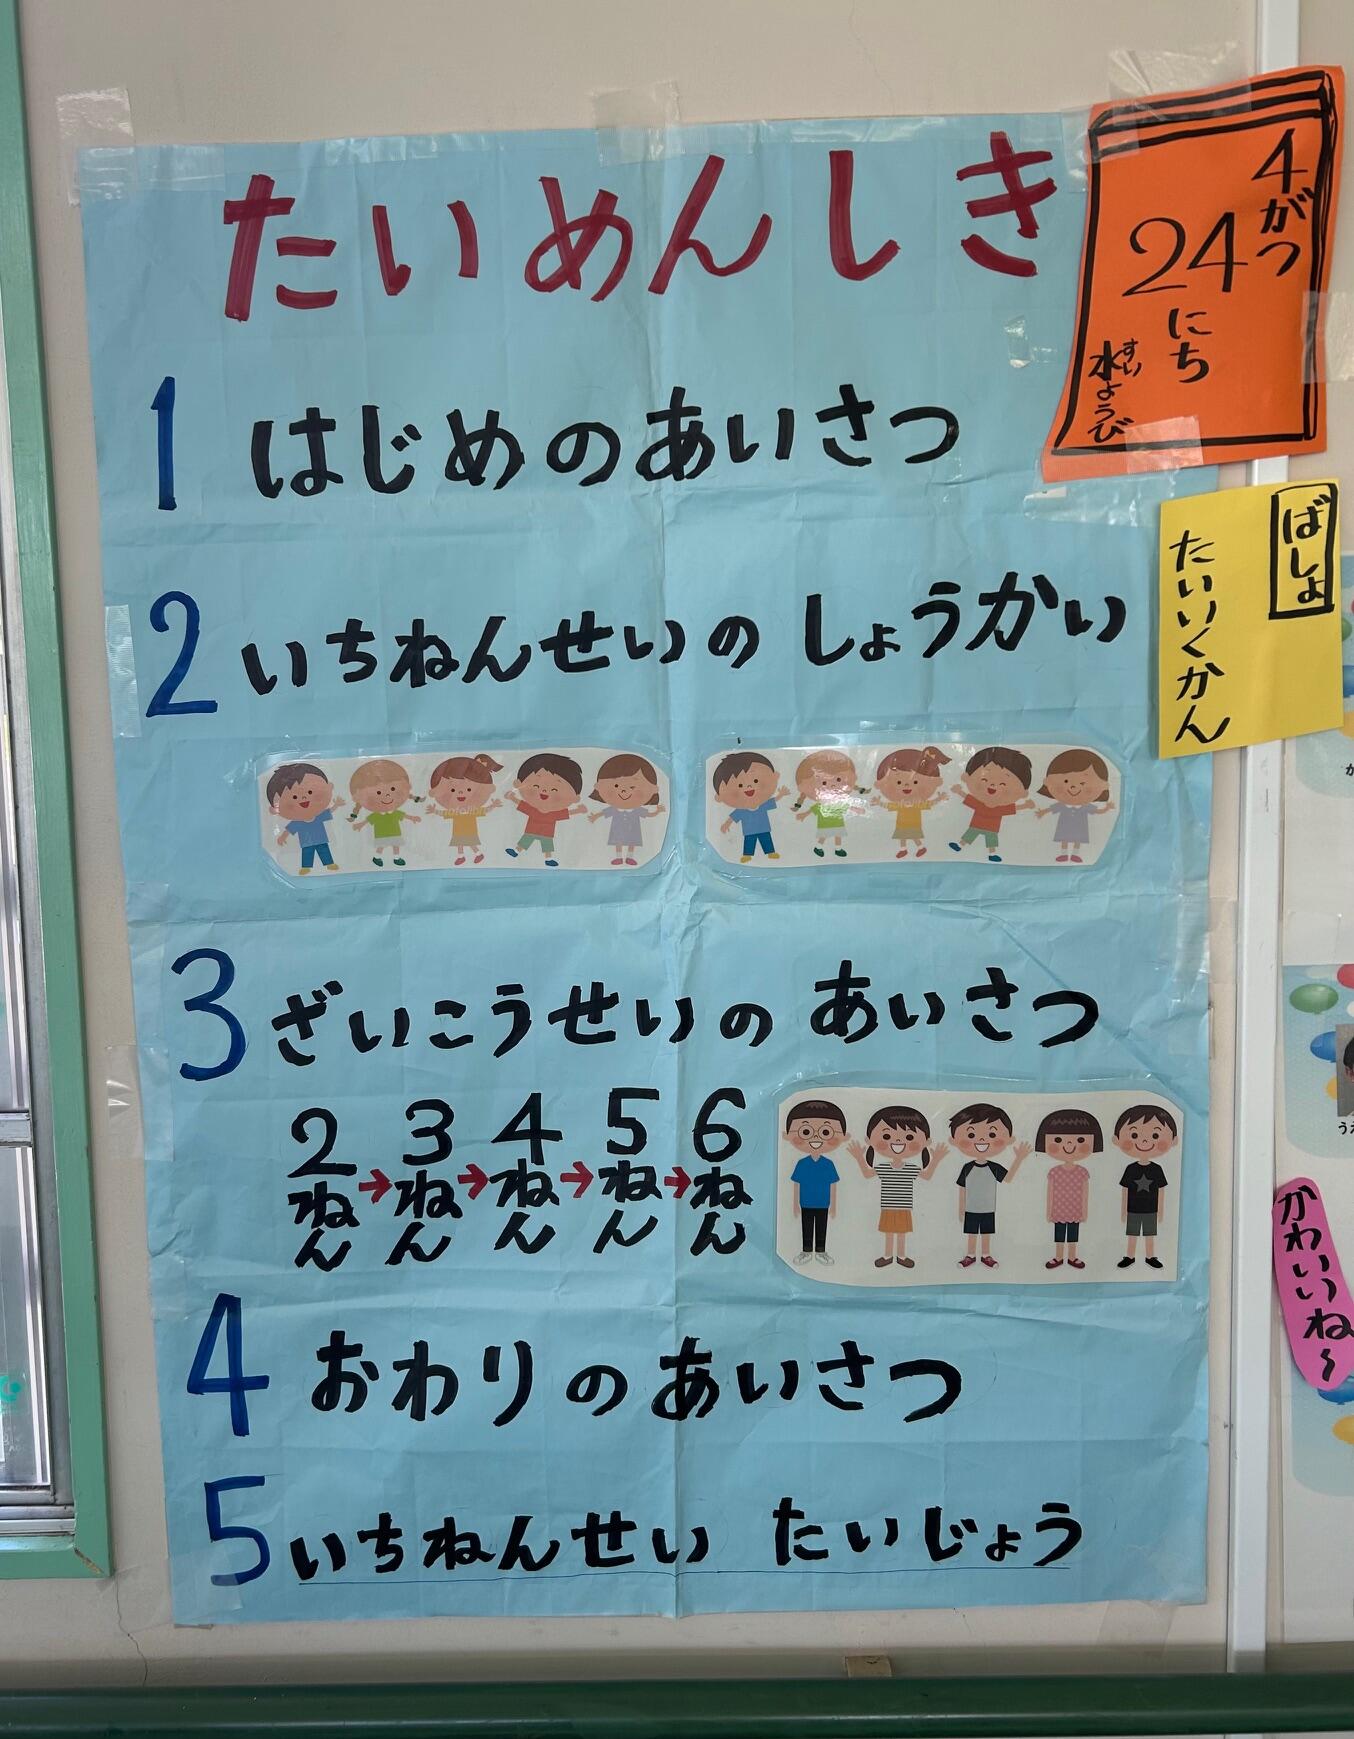 たいめんしき
4がつ
24にち
水ようび
すい
ばしょ
たいいくかん
1 はじめのあいさつ
2 いちねんせいの しょうかい
3 ざいこうせいの あいさつ
2ねん→3ねん→4ねん→5ねん→6ねん
4 おわりのあいさつ
5 いちねんせい たいじょう
かわいいね～